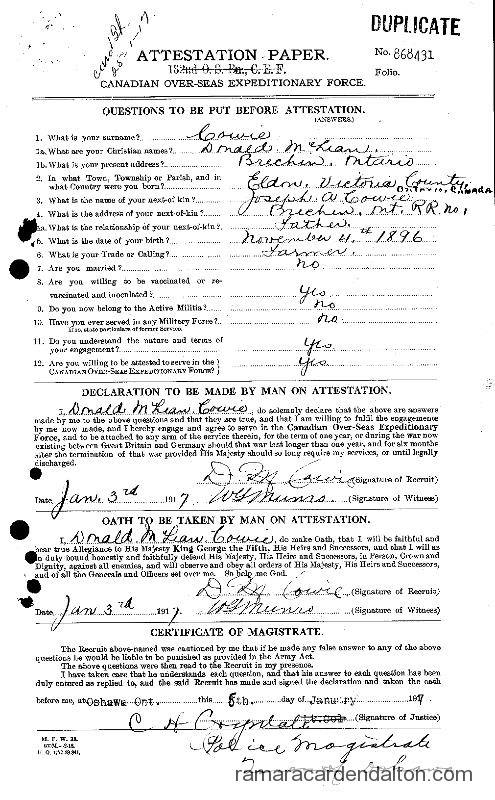 DUPLICATE
Card Sh.
25-1-17
ATTESTATION PAPER.
No. 868431
182nd O. S. Bn., C. E. F.
Folio.
CANADIAN OVER-SEAS EXPEDITIONARY FORCE.
QUESTIONS TO BE PUT BEFORE ATTESTATION.
(ANSWERS.)
1. What is your surname? Cowie
1a. What are your Christian names? Donald McLean
1b. What is your present address? Brechin. Ontario
2. In what Town, Township or Parish, and in
what Country were you born? Eldon, Victoria County
Ontario, Canada
3. What is the name of your next-of-kin? Joseph A Cowie
4. What is the address of your next-of-kin? Brechin. Ont. RR. No. 1
4a. What is the relationship of your next-of-kin? Father
5. What is the date of your birth? November 4th 1896
6. What is your Trade or Calling? Farmer
7. Are you married? No
8. Are you willing to be vaccinated or re-
vaccinated and inoculated? Yes
9. Do you now belong to the Active Militia? No
10. Have you ever served in any Military Force? No
If so, state particulars of former Service.
11. Do you understand the nature and terms of
your engagement? Yes
12. Are you willing to be attested to serve in the
CANADIAN OVER-SEAS EXPEDITIONARY FORCE? Yes
DECLARATION TO BE MADE BY MAN ON ATTESTATION.
I, Donald McLean Cowie, do solemnly declare that the above are answers
made by me to the above questions and that they are true, and that I am willing to fulfil the engagements
by me now made, and I hereby engage and agree to serve in the Canadian Over-Seas Expeditionary
Force, and to be attached to any arm of the service therein, for the term of one year, or during the war now
existing between Great Britain and Germany should that war last longer than one year, and for six months
after the termination of that war provided His Majesty should so long require my services, or until legally
discharged.
D. M Cowie (Signature of Recruit)
Date Jan. 3rd 1917 W G Munro (Signature of Witness)
OATH TO BE TAKEN BY MAN ON ATTESTATION.
I, Donald McLean Cowie, do make Oath, that I will be faithful and
bear true Allegiance to His Majesty King George the Fifth, His Heirs and Successors, and that I will as
in duty bound honestly and faithfully defend His Majesty, His Heirs and Successors, in Person, Crown and
Dignity, against all enemies, and will observe and obey all orders of His Majesty, His Heirs and Successors,
and of all the Generals and Officers set over me. So help me God.
D. M Cowie (Signature of Recruit)
Date Jan 3rd 1917. W G Munro (Signature of Witness)
CERTIFICATE OF MAGISTRATE.
The Recruit above-named was cautioned by me that if he made any false answer to any of the above
questions he would be liable to be punished as provided in the Army Act.
The above questions were then read to the Recruit in my presence.
I have taken care that he understands each question, and that his answer to each question has been
duly entered as replied to, and the said Recruit has made and signed the declaration and taken the oath
before me, at Oshawa Ont. this 5th. day of January 1917
(Signature of Justice)
Police Magistrate
M. F. W. 23.
ramaracardendalton.com